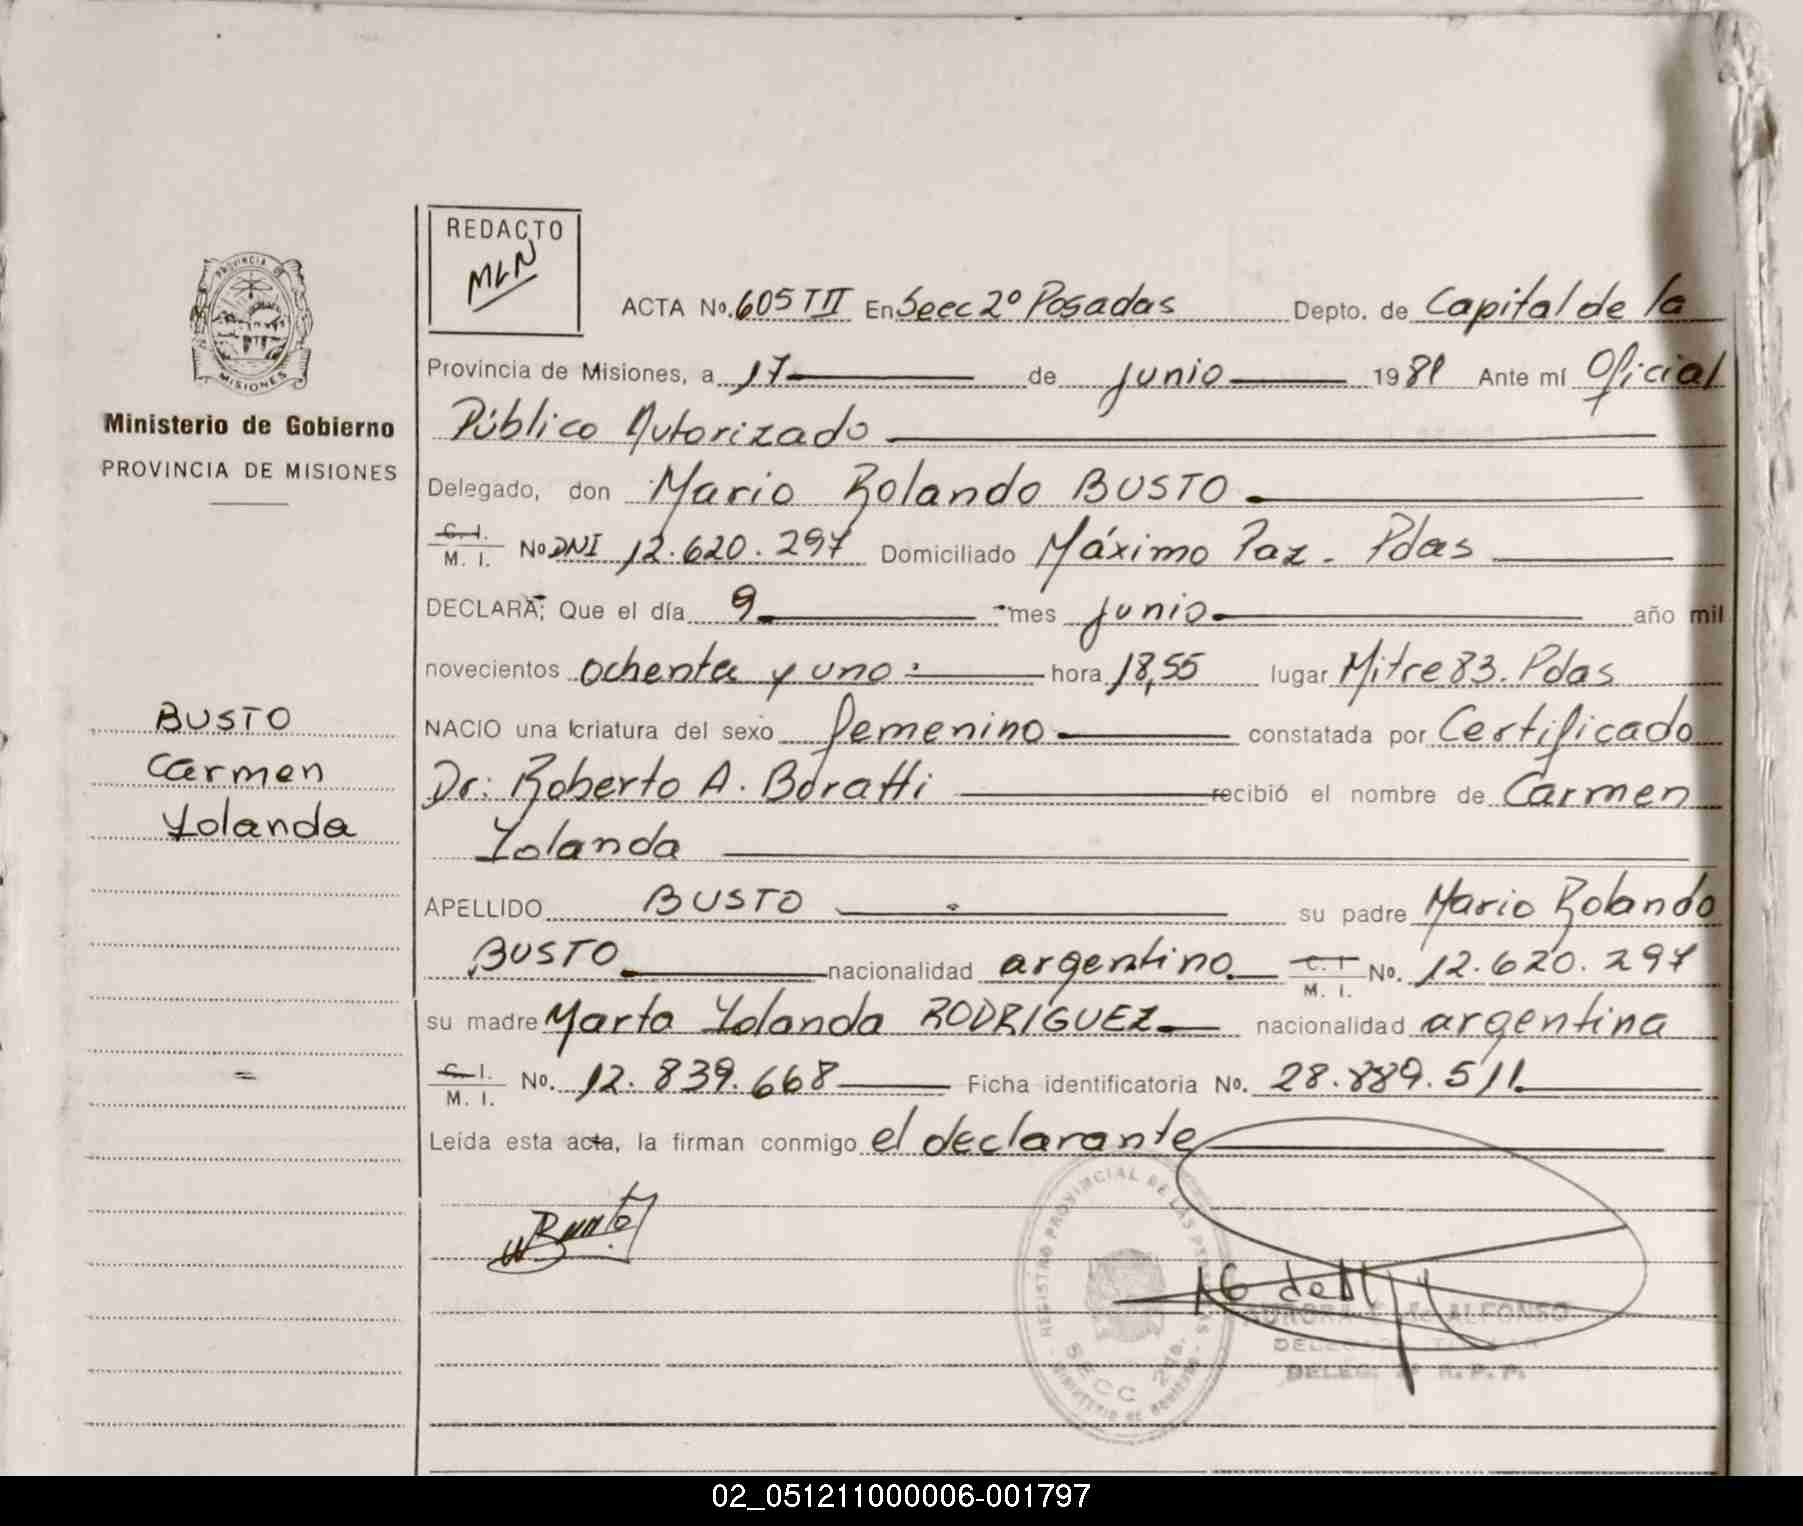 REDACTO
MLN
PROVINCIA DE
MISIONES
Ministerio de Gobierno
PROVINCIA DE MISIONES
BUSTO
Carmen
Yolanda
ACTA No. 605 TII En Secc 2º Posadas Depto. de Capital de la
Provincia de Misiones, a 17 de junio 1981 Ante mí Oficial
Público Autorizado
Delegado, don Mario Rolando BUSTO
C. I. / M. I. No DNI 12.620.297 Domiciliado Máximo Paz - Pdas
DECLARA; Que el día 9 mes junio año mil
novecientos ochenta y uno hora 18,55 lugar Mitre 83. Pdas
NACIO una criatura del sexo femenino constatada por Certificado
Dr: Roberto A. Boratti recibió el nombre de Carmen
Yolanda
APELLIDO BUSTO su padre Mario Rolando
BUSTO nacionalidad argentino C. I. / M. I. No. 12.620.297
su madre Marta Yolanda RODRIGUEZ nacionalidad argentina
C. I. / M. I. No. 12.839.668 Ficha identificatoria No. 28.889.511
Leída esta acta, la firman conmigo el declarante
Busto
REGISTRO PROVINCIAL DE LAS PERSONAS
SECC 2da.
MINISTERIO DE GOBIERNO
AURORA de ALFONSO
TITULAR
DELEG. R. P. P.
02_051211000006-001797